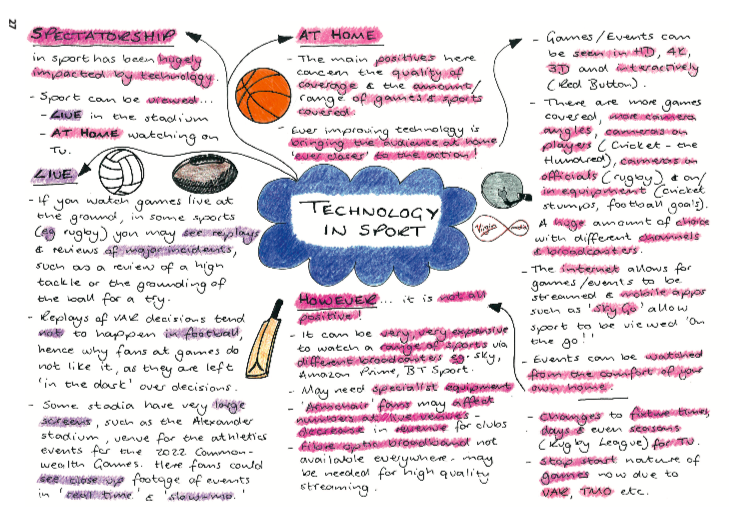 27
SPECTATORSHIP
in sport has been hugely
impacted by technology.
- Sport can be viewed...
- LIVE in the stadium
- AT HOME watching on
TV.
LIVE
- If you watch games live at
the ground, in some sports
(eg rugby) you may see replays
& reviews of major incidents,
such as a review of a high
tackle or the grounding of
the ball for a try.
- Replays of VAR decisions tend
not to happen in football,
hence why fans at games do
not like it, as they are left
'in the dark' over decisions.
- Some stadia have very large
screens, such as the Alexander
stadium, venue for the athletics
events for the 2022 Common-
wealth Games. Here fans could
see close up footage of events
in 'real time' & 'slow-mo.'
AT HOME
- The main positives here
concern the quality of
coverage & the amount/
range of games & sports
covered.
- Ever improving technology is
bringing the audience at home
'ever closer' to the action!
TECHNOLOGY
IN SPORT
HOWEVER... it is not all
positive!
- It can be very, very expensive
to watch a range of sports via
different broadcasters eg. Sky,
Amazon Prime, BT Sport.
- May need specialist equipment
- 'Armchair' fans may affect
numbers at live venues -
decrease in revenue for clubs
- Fibre optic broadband not
available everywhere - may
be needed for high quality
streaming.
- Games/Events can
be seen in HD, 4K,
3D and interactively
(Red Button).
- There are more games
covered, more camera
angles, cameras on
players (Cricket - the
Hundred), cameras on
officials (rugby) & on/
in equipment (cricket
stumps, football goals).
- A huge amount of choice
with different channels
& broadcasters.
- The internet allows for
games/events to be
streamed & mobile apps
such as 'Sky Go' allow
sport to be viewed 'On
the go!'
- Events can be watched
from the comfort of your
own home.
- Changes to fixture times,
days & even seasons
(Rugby League) for TV.
- Stop start nature of
games now due to
VAR, TMO etc.
Virgin media